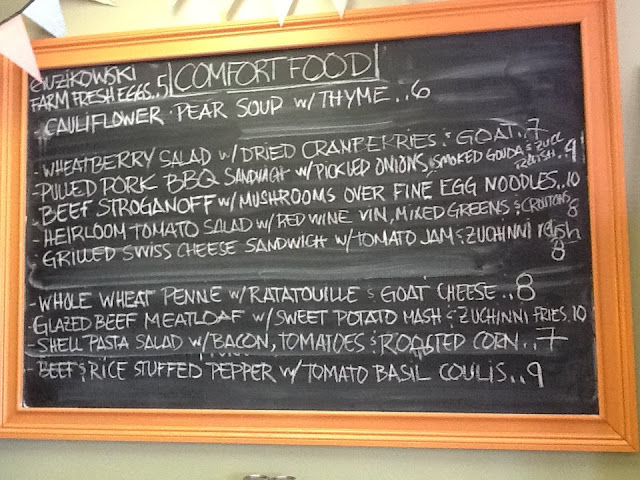 GUZIKOWSKI
FARM FRESH EGGS..5
COMFORT FOOD
CAULIFLOWER · PEAR SOUP w/ THYME..6
- WHEATBERRY SALAD w/ DRIED CRANBERRIES & GOAT..7
- PULLED PORK BBQ SANDWICH w/ PICKLED ONIONS, SMOKED GOUDA & ZUCC RELISH..9
- BEEF STROGANOFF w/ MUSHROOMS OVER FINE EGG NOODLES..10
- HEIRLOOM TOMATO SALAD w/ RED WINE VIN, MIXED GREENS & CROUTONS 8
- GRILLED SWISS CHEESE SANDWICH w/ TOMATO JAM & ZUCHINNI relish 8
- WHOLE WHEAT PENNE w/ RATATOUILLE & GOAT CHEESE..8
- GLAZED BEEF MEATLOAF w/ SWEET POTATO MASH & ZUCHINNI FRIES.10
- SHELL PASTA SALAD w/ BACON, TOMATOES & ROASTED CORN..7
- BEEF & RICE STUFFED PEPPER w/ TOMATO BASIL COULIS..9